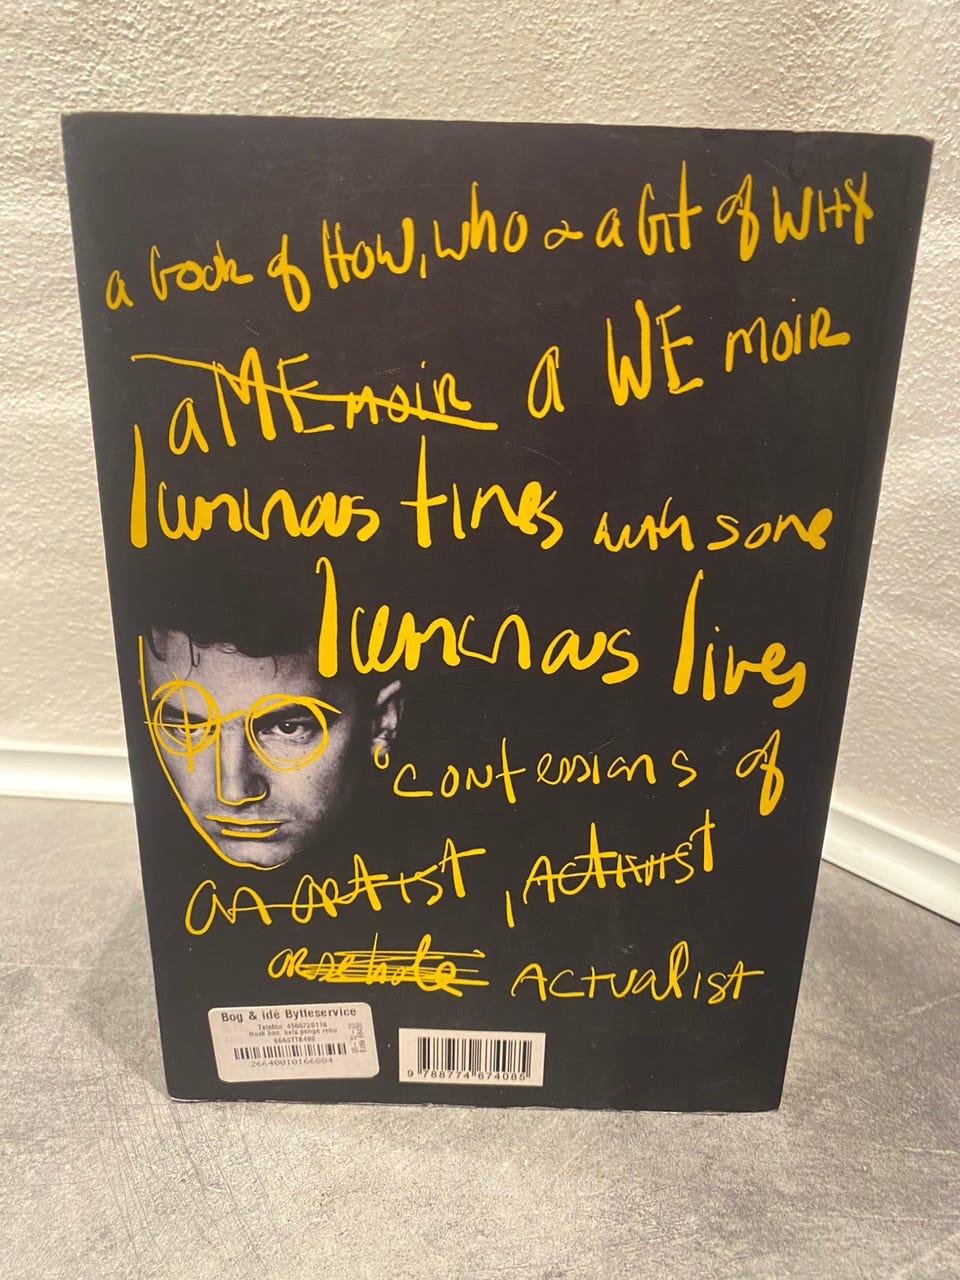 a book of How, who & a bit of WHY
a MEmoir a WE moir
luminous times with some
luminous lives
confessions of
an artist, Activist
arsehole ACTUALIST
Bog & idé Bytteservice
Telefon 4566720116
Husk bon, hvis penge retur
26640010166804
9 788774 674085